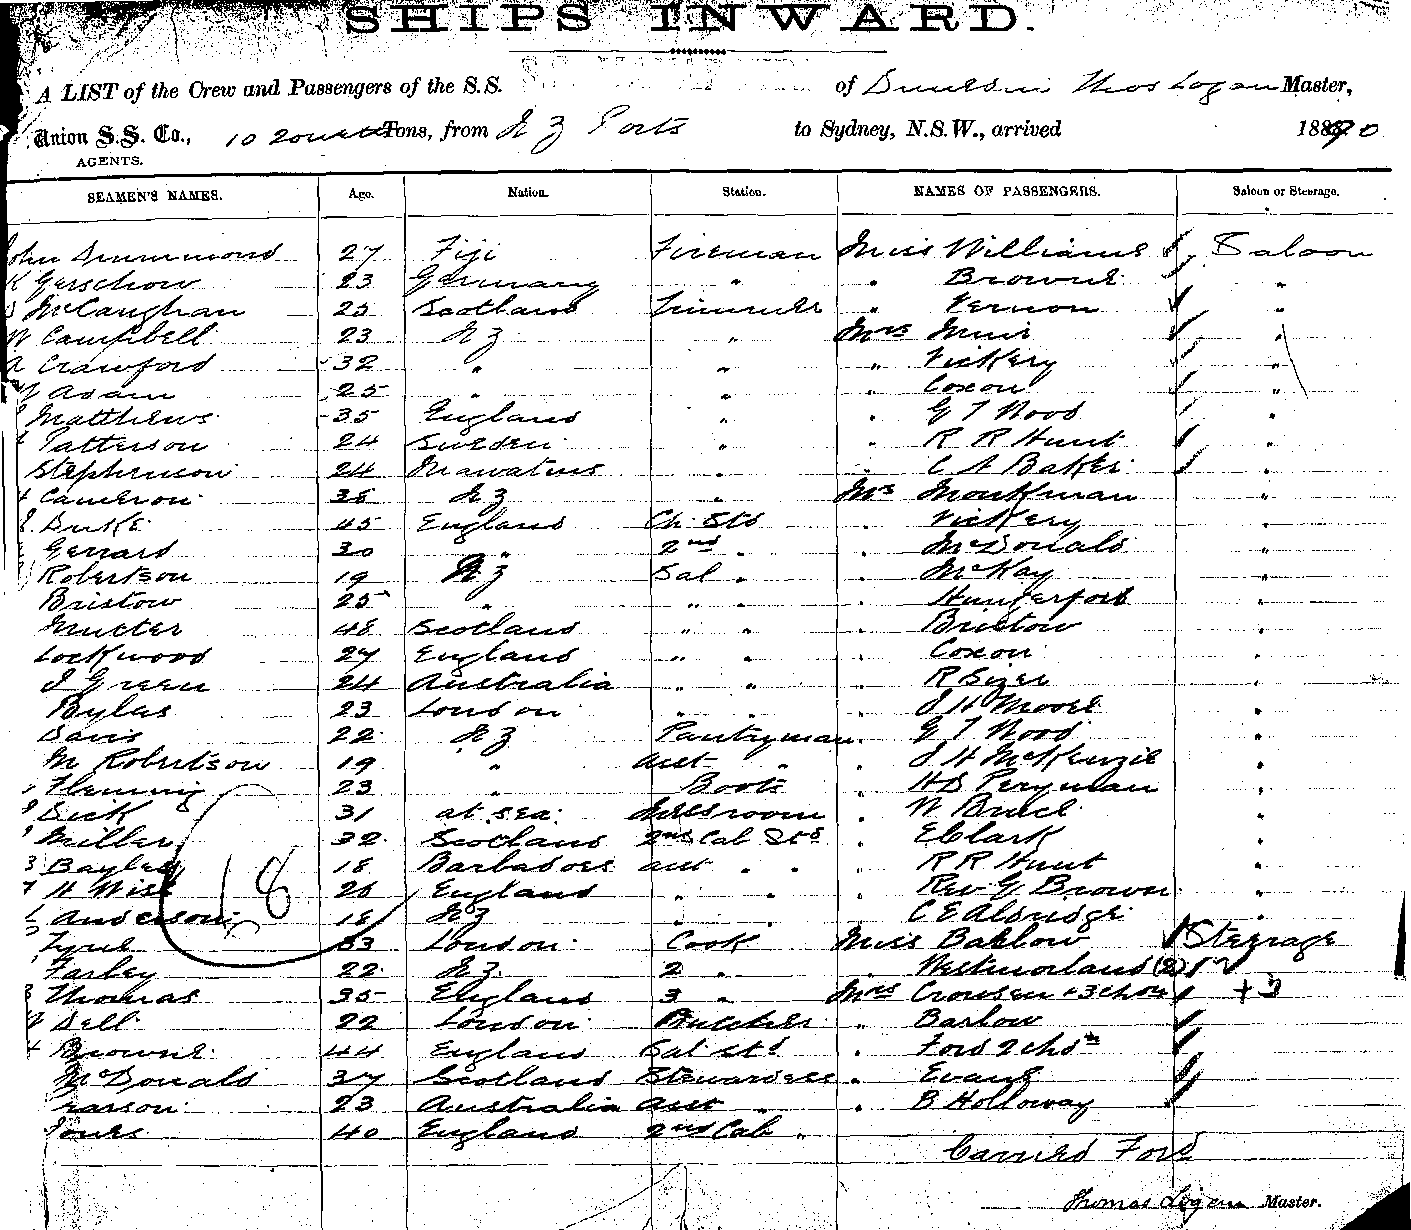 SHIPS INWARD.
A LIST of the Crew and Passengers of the S.S. of Dunedin Thos Logan Master,
Union S.S. Co., Tons, from N Z Ports to Sydney, N.S.W., arrived 1890
AGENTS.
SEAMEN'S NAMES. Age. Nation. Station. NAMES OF PASSENGERS. Saloon or Steerage.
John Drummond 27 Fiji Fireman Miss Williams Saloon
K Gerschow 23 Germany " " Browne "
McCaughan 25 Scotland Trimmer " Vernon "
W Campbell 23 N Z " Mrs Muir "
A Crawford 32 " " " Vickery "
Adam 25 " " " Coxon "
Matthews 35 England " " G T Wood "
Patterson 24 Sweden " " R R Hunt "
Stephenson 24 " " C A Baker "
Cameron 38 N Z " Mrs Monkman "
Duke 45 England Ch. Std Vickery "
Gerrard 30 " 2nd " " McDonald "
Robertson 19 N Z Sal " " McKay "
Bristow 25 " " " " Hungerford "
Mutter 48 Scotland " " " Bristow "
Lockwood 27 England " " " Coxon "
J Green 24 Australia " " " R Sizer "
Byles 23 London " " " J H Moore "
Davis 22 N Z Pantryman " G T Wood "
M Robertson 19 " asst " " J H McKenzie "
Fleming 23 " Boots " H D Perryman "
Dick 31 at sea Messroom " W Bruce "
Miller 32 Scotland 2nd Cab Std E Clark "
Bayley 18 Barbadoes asst " " R R Hunt "
H Wise 26 England " " Rev G Brown "
18
Anderson 18 N Z " " C E Aldridge "
Tyrel 33 London Cook Miss Barlow Steerage
Farley 22 N Z 2 " " Westmorland (2)
Thomas 35 England 3 " Mrs Crowsen + 3 chdn + 3
Dell 22 London Butcher " Barlow
Browne 44 England Sal std " Ford 2 chdn
McDonald 37 Scotland Stewardess " Evans
23 Australia asst " " B Holloway
Jones 40 England 2nd Cab "
Carried Ford
Thomas Logan Master.